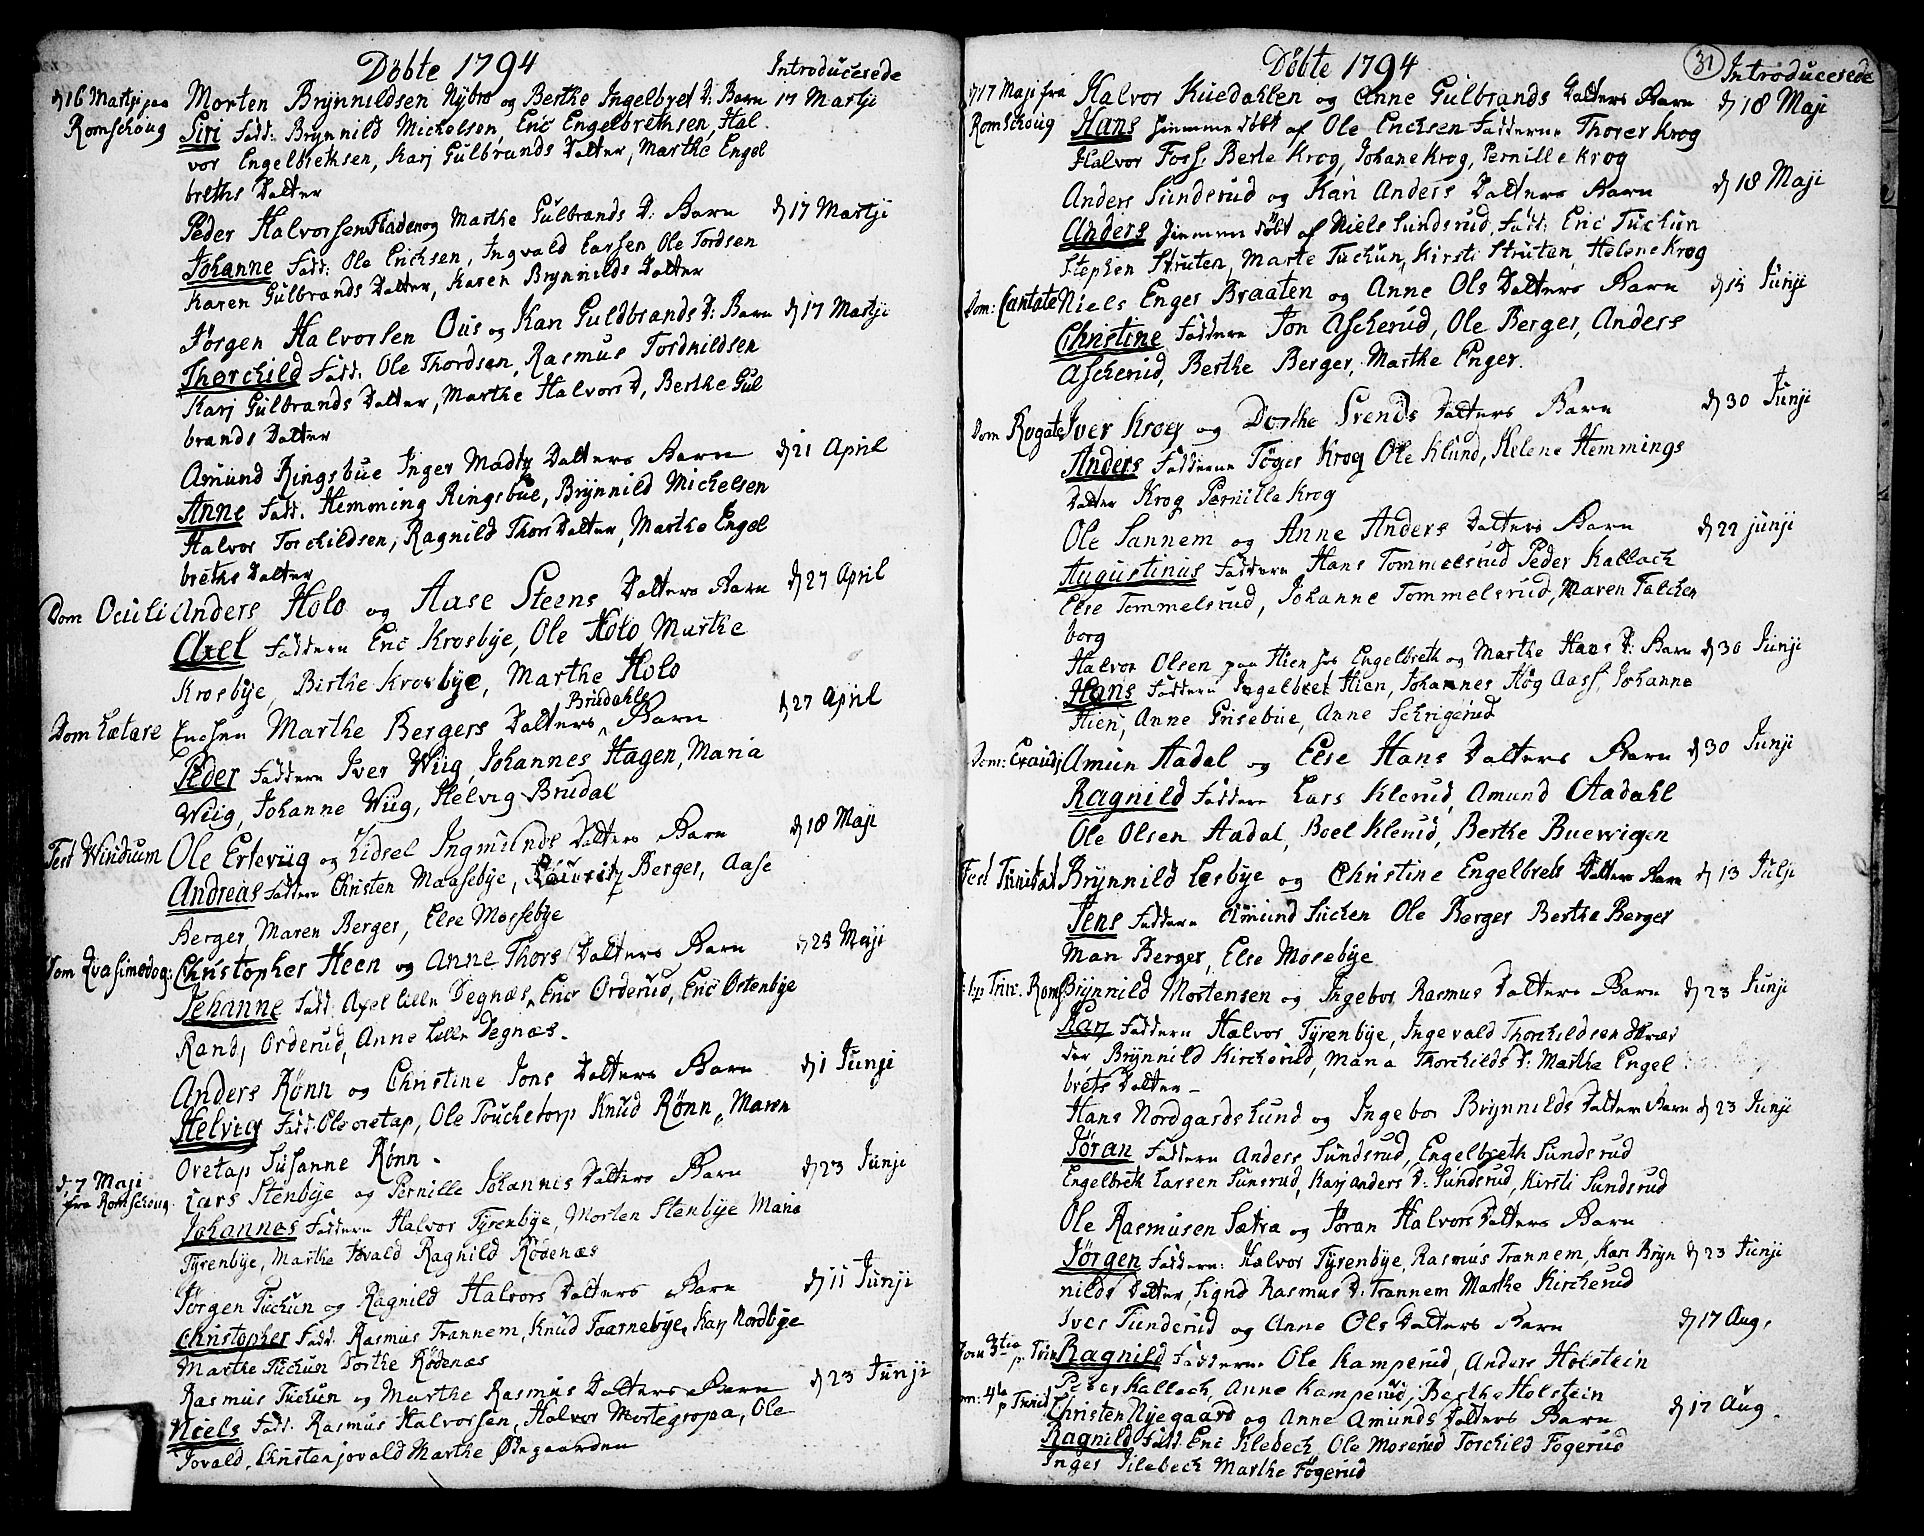 Döbte 1794 Introducerede
d 16 Martji paa Morten Brynnildsen Nybro og Berthe Ingelbret D: Barn 17 Martji
Romschoug Siri Fadd: Brynnild Mickelsen, Eric Engelbrethsen, Hal
vor Engelbrethsen, Karj Gulbrands Datter, Marthe Engel
breths Datter
Peder Halvorsen Fladen og Marthe Gulbrands D: Barn d 17 Martji
Johanne Fadd: Ole Erichsen, Ingvald Larsen Ole Tordsen
Karen Gulbrands Datter, Karen Brynnilds Datter
Jörgen Halvorsen Ous og Kari Guldbrands D: Barn d 17 Martji
Thorchild Fadd: Ole Thordsen, Rasmus Tordnildsen
Karj Gulbrands Datter, Marthe Halvors D, Berthe Gul
brands Datter
Amund Ringsbue Inger Madtz Datters Barn d 21 April
Anne Fadd. Hemming Ringsbue, Brynnild Michelsen
Halvor Torchildsen, Ragnild Thors Datter, Marthe Engel
breths Datter
Dom Oculi Anders Holo og Aase Steens Datters Barn d 27 April
Axel Faddern Eric Krosbye, Ole Holo Marthe
Krosbye, Berthe Krosbye, Marthe Holo
Brudahls
Dom Lætare Erichsen Marthe Bergers Datters Barn d 27 April
Peder Faddern Iver Wiig, Johannes Hagen, Maria
Wiig, Johanne Wiig, Helvig Brudal
Fest Viridium Ole Ertevig og Zidsel Ingmunds Datters Barn d 18 Maji
Andreas Faddere Christen Maasebye, Berger, Aase
Berger, Maren Berger, Else Mossebye
Dom Qvasimodog: Christopher Heen og Anne Thors Datters Barn d 25 Maji
Johanne Fadd: Axel Lille Degnæs, Eric Orderud, Eric Ostenbye
Randj Orderud, Anne Lille Degnæs.
Anders Rönn og Christine Jons Datters Barn d 1 Junji
Helvig Fadd: Ole oretap, Ole Touchetorp Knud Rönn, Maren
Oretap Susanne Rönn.
d. 7 Maji
fra Romschoug Lars Stenbye og Pernille Johannes Datters Barn d 23 Junji
Johannes Faddern Halvor Tyrenbye, Morten Stenbye Maria
Tyrenbye, Marthe Jovald Ragnild Rödenæs
Jörgen Tuchun og Ragnild Halvors Datters Barn d 11 Junji
Christopher Fadd. Rasmus Trannem, Knud Taarnebye, Karj Nordbye
Marthe Tuchun Dorthe Rödenæs
Rasmus Tuchun og Marthe Rasmus Datters Barn d 23 Junji
Niels Fadd. Rasmus Halvorsen, Halvor Mortegropa, Ole
Jovald, Christen jovald Marthe Ödegaarden
Döbte 1794 31 Introducerede
d 17 Maji fra Halvor Kuedahlen og Anne Gulbrands Datters Barn d 18 Maji
Romschoug Hans hjemme döbt af Ole Erichsen Fadderne Thorer Krog
Halvor Foss, Berte Krog, Johane Krog, Pernille Krog
Anders Sundsrud og Kari Anders Datters Barn d 18 Maji
Anders hjemme döbt af Niels Sundsrud, Fadd: Eric Tuchun
Stephen Struten, Marte Tuchun, Kirsti Struten, Helene Krog
Dom: Cantate Niels Enger Braaten og Anne Ols Datters Barn d 15 Junji
Christine Faddere Jon Ascherud, Ole Berger, Anders
Ascherud, Berthe Berger, Marthe Enger.
Dom Rogate Iver Krog og Dorthe Svends Datters Barn d 30 Junji
Anders Fadderne Töger Krog Ole Klund, Helene Hemmings
Datter Krog Pernille Krog
Ole Sannem og Anne Anders Datters Barn d 22 junji
Augustinus Faddere Hans Tommelsrud Peder Kallach
Else Tommelsrud, Johanne Tommelsrud, Maren Falchen
borg
Halvor Olsen paa Hien hos Engelbreth og Marthe Hans D: Barn d 30 Junji
Hans Faddern Ingelbret Hien, Johannes Høg Aass, Johanne
Hien, Anne Grisebue, Anne Schrigerud
Dom: Exaudj Amun Aadal og Else Hans Datters Barn d 30 Junji
Ragnild Faddere Lars Klerud, Amund Aadahl
Ole Olsen Aadal, Boel Klerud, Berthe Buevrigen
Fest Trinitat Brynnild Lesbye og Christine Engelbrets Datters Barn d 13 Julji
Jens Faddere Amund Tuchen Ole Berger Berthe Berger
Mari Berger, Else Mosebye
p Trin. Roms Brynnild Mortensen og Ingebor Rasmus Datters Barn d 23 Junji
Karj Faddern Halvor Tyrenbye, Ingevald Thorchildsen Skræd
der, Brynnild Kircherud, Maria Thorchilds D: Marthe Engel
brets Datter –
Hans Nordgardslund og Ingebor Brynnilds Datters Barn d 23 Junji
Jöran Faddern Anders Sundsrud, Engelbreth Sundsrud
Engelbret Larsen Sunsrud, Karj anders D. Sundsrud, Kirsti Sundsrud
Ole Rasmusen Sætra og Jöran Halvors Datters Barn
Jörgen Faddern: Halvor Tyrenbye, Rasmus Trannem, Kari Bryn d 23 Junji
nilds Datter, Signe Rasmus D: Trannem Marthe Kircherud
Iver Tunderud og Anne Ols Datters Barn d 17 Aug.
Dom 3tia p. Trin Ragnild Fadderne Ole Kamperud, Anders Holstein
Peder Kallach, Anne Kamperud, Berthe Holstein
Dom: 4ta p Trinit Christen Nyegaard og Anne Amunds Datters Barn d 17 Aug.
Ragnild Fadd: Eric Silebech, Ole Moserud Torchild Fögerud
Inger Silebech Marthe Fögerud